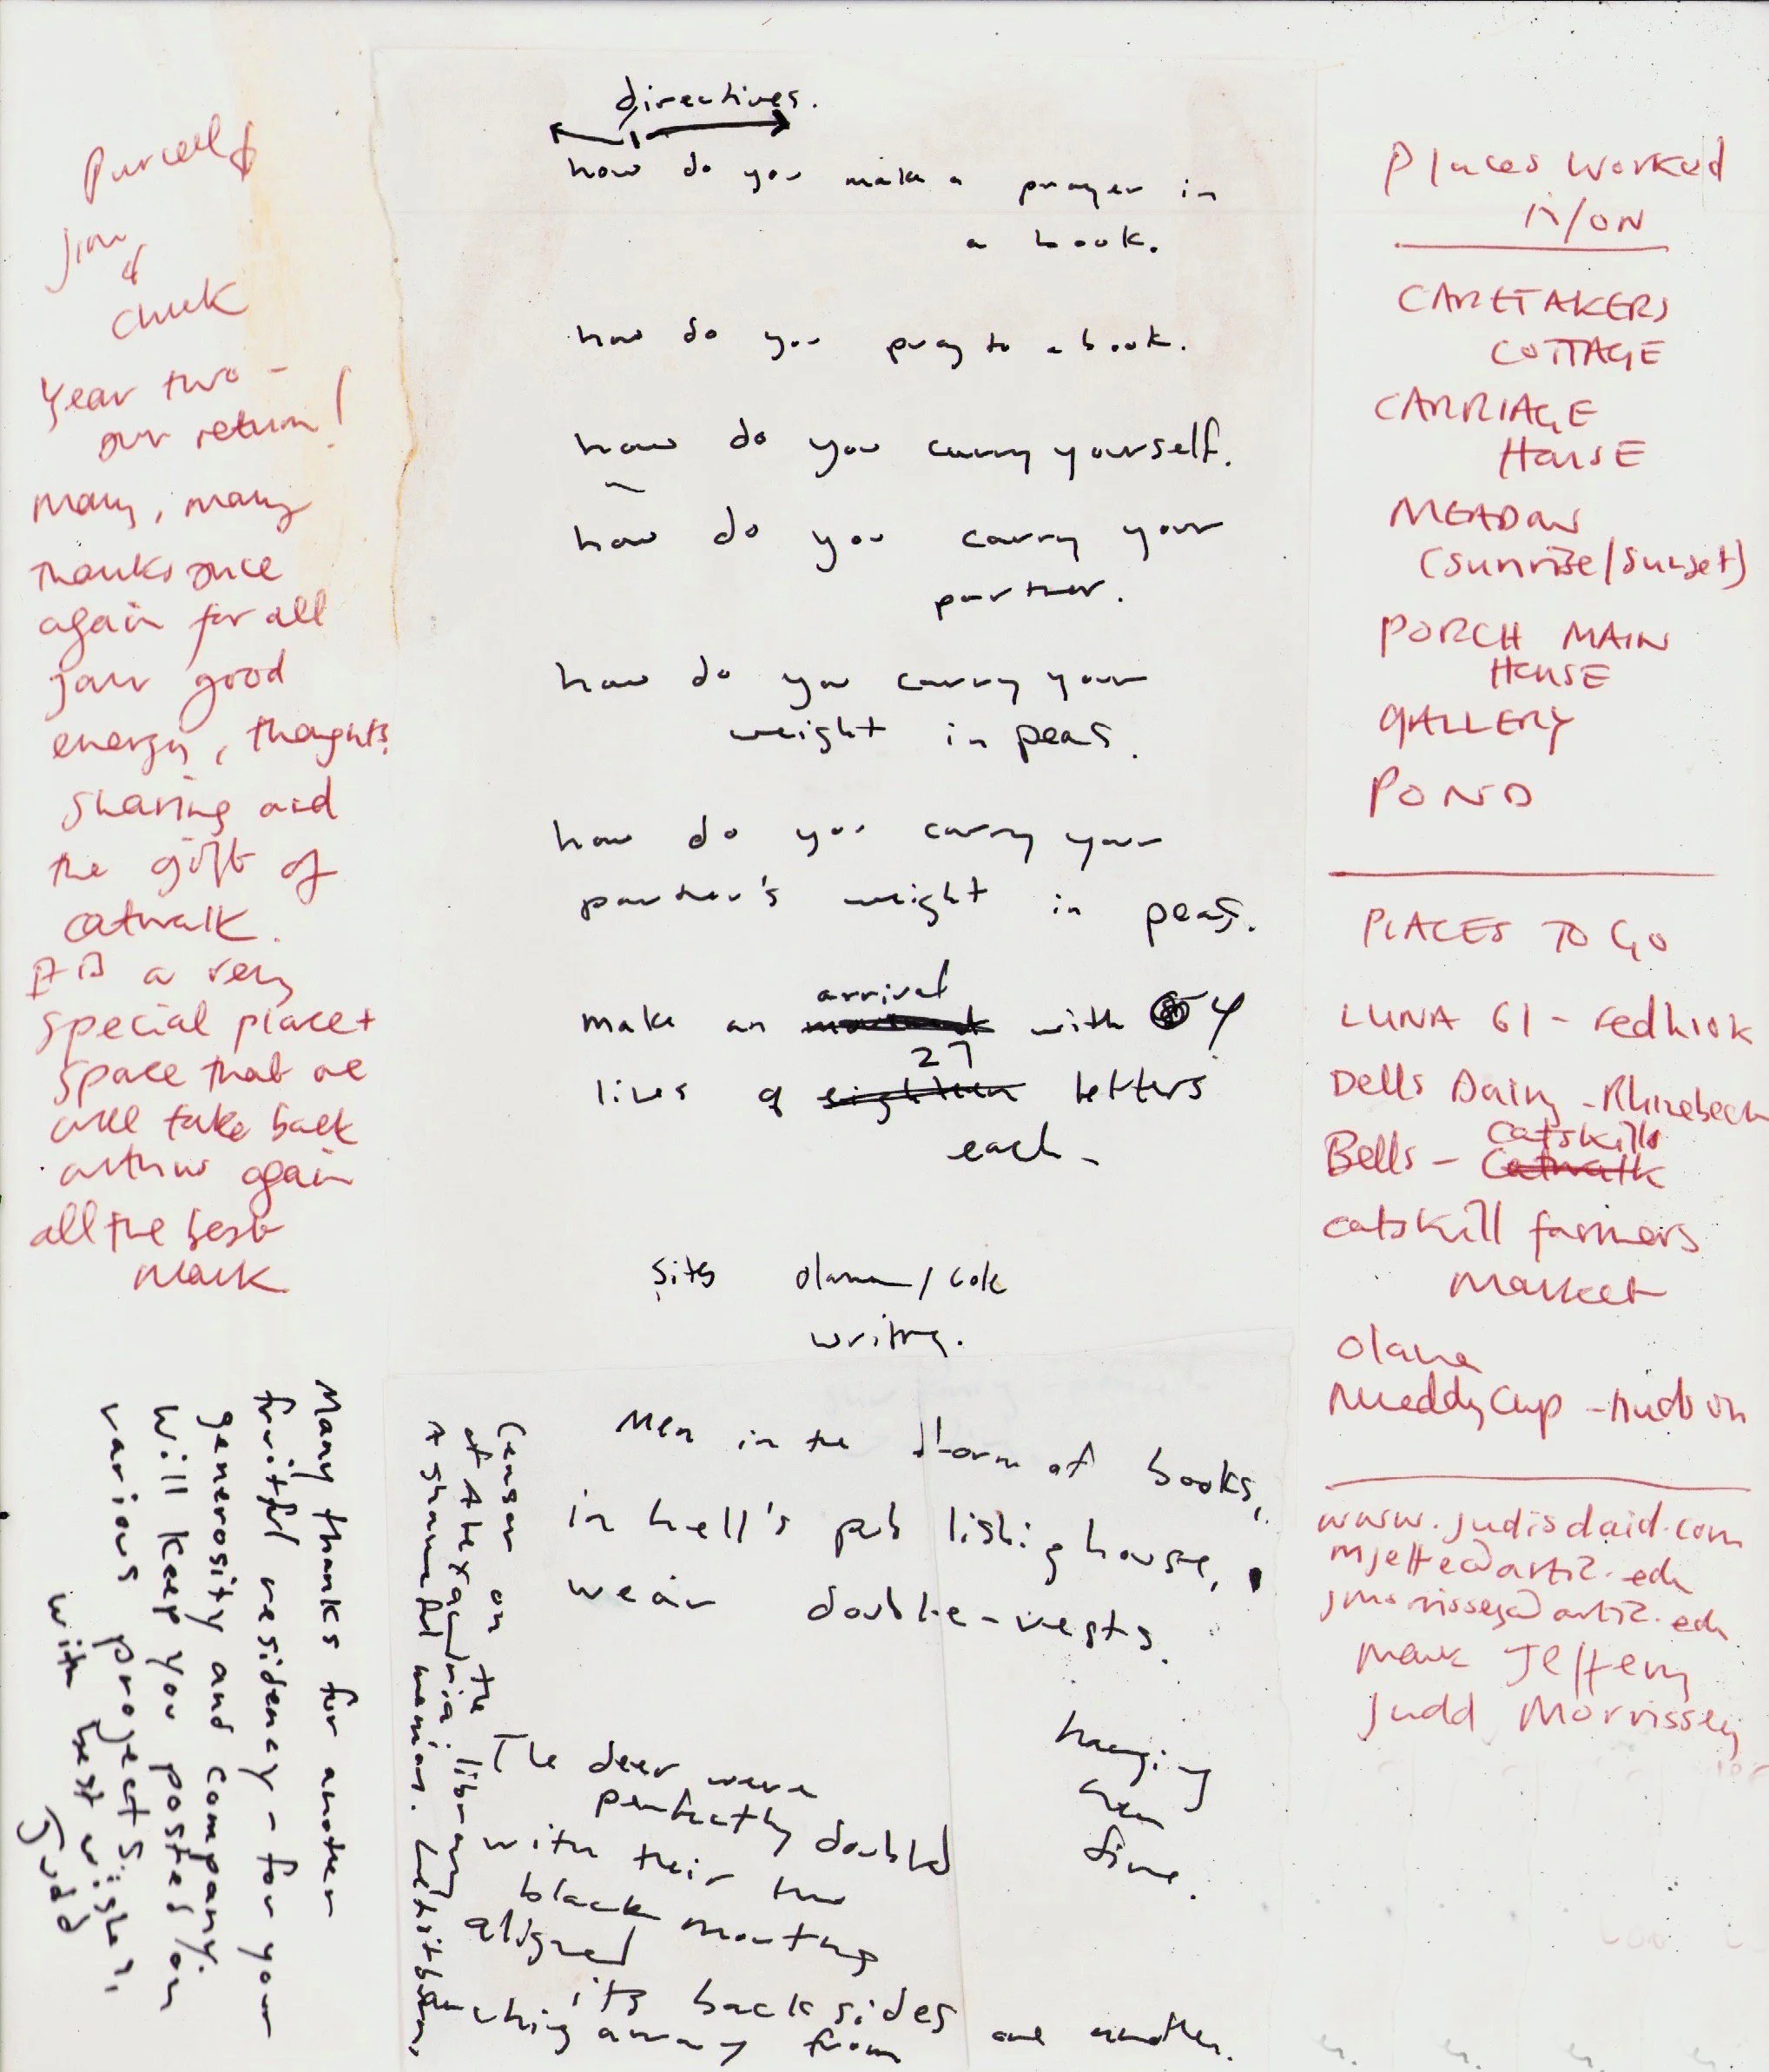 Purcell &
Jim
&
Chuck
Year two -
our return!
Many, many
thanks once
again for all
your good
energy, thoughts
sharing and
the gift of
catwalk.
It is a very
special place +
space that we
will take back
with us again
all the best
Mark
Many thanks for another
fruitful residency - for your
generosity and company.
Will keep you posted on
various projects.
With best wishes,
Judd
directives.
how do you make a prayer in
a book.
how do you pray to a book.
how do you carry yourself.
how do you carry your
partner.
how do you carry your
weight in peas.
how do you carry your
partner's weight in peas.
arrival
make an movement with 4
27
lines of eighteen letters
each -
sites olana/cole
writing.
Censor on the
of Alexandria library
A shameful memory.
Men in the storm of books,
in hell's publishing house,
wear double-vests.
The deer were
perfectly doubled
with their two
black
aligned
its backsides
away from one another.
hanging
fire.
Places worked
in/on
CARETAKERS
COTTAGE
CARRIAGE
HOUSE
MEADOW
(sunrise/sunset)
PORCH MAIN
HOUSE
GALLERY
POND
PLACES TO GO
LUNA 61 - redhook
Dells Dairy - Rhinebeck
Catskills
Bells - Catwalk
catskill farmers
market
Olana
Muddy Cup - Hudson
www.judisdaid.com
mjeffe@artic.edu
jmorrissey@artic.edu
Mark Jeffery
Judd Morrissey